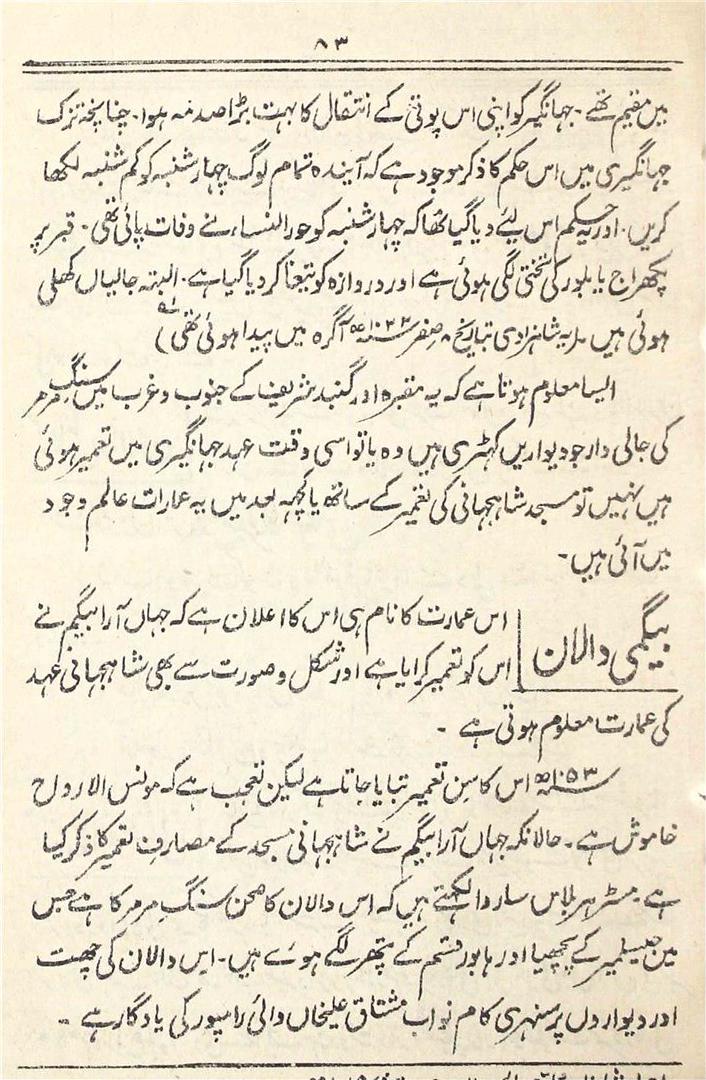 ۸۳
میں مقیم تھے۔ جہانگیر کو اپنی اس پوتی کے انتقال کا بہت بڑا صدمہ ہوا۔ چنانچہ تزک
جہانگیری میں اس حکم کا ذکر موجود ہے کہ آیندہ تمام لوگ چہار شنبہ کو کم شنبہ لکھا
کریں۔ اور یہ حکم اس لیے دیا گیا تھا کہ چہار شنبہ کو حور النساء نے وفات پائی تھی۔ قبر پر
پکھراج یا بلور کی تختی لگی ہوئی ہے اور دروازہ کو تیغا کر دیا گیا ہے۔ البتہ جالیاں کھلی
ہوئی ہیں۔ (یہ شاہزادی بتاریخ ۸ صفر آگرہ میں پیدا ہوئی تھی)
ایسا معلوم ہوتا ہے کہ یہ مقبرہ اور گنبد شریف کے جنوب و غرب میں سنگ مرمر
کی جالی دار جو دیواریں کھڑی ہیں وہ یا تو اسی وقت عہد جہانگیری میں تعمیر ہوئی
ہیں نہیں تو مسجد شاہجہانی کی تعمیر کے ساتھ یا کچھہ بعد میں یہ عمارات عالم وجود
میں آئی ہیں۔
بیگمی دالان
اس عمارت کا نام ہی اس کا اعلان ہے کہ جہاں آرا بیگم نے
اس کو تعمیر کرایا ہے اور شکل و صورت سے بھی شاہجہانی عہد
کی عمارت معلوم ہوتی ہے۔
سنہ ۱۰۵۳ھ اس کا سن تعمیر بتایا جاتا ہے لیکن تعجب ہے کہ مونس الارواح
خاموش ہے۔ حالانکہ جہاں آرا بیگم نے شاہجہانی مسجد کے مصارف تعمیر کا ذکر کیا
ہے۔ مسٹر ہربلاس ساردا لکھتے ہیں کہ اس دالان کا صحن سنگ مرمر کا ہے جس
میں جیسلمیر کے پچھیا اور ہابور قسم کے پتھر لگے ہوئے ہیں۔ اس دالان کی چھت
اور دیواروں پر سنہری کام نواب مشتاق علیخاں والئی رامپور کی یادگار ہے۔